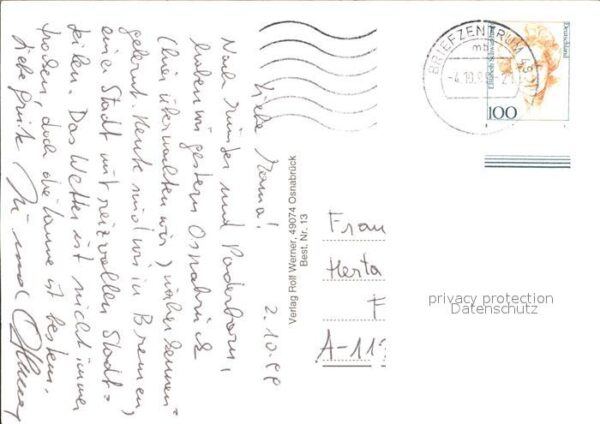 2.10.99
Liebe Mama!
Nach Münster und Paderborn,
haben wir gestern Osnabrück
(hier übernachten wir) näher kennen=
gelernt. Heute sind wir in Bremen,
einer Stadt mit reizvollen Stadt=
teilen. Das Wetter ist nicht immer
trocken doch die Laune ist bestens.
Liebe Grüße
und
Verlag Rolf Werner, 49074 Osnabrück
Best. Nr. 13
BRIEFZENTRUM 49
mb
-4.10.99-21
Deutschland
Elisabeth Schwarzhaupt
100
Frau
Herta
F
A-119
privacy protection
Datenschutz